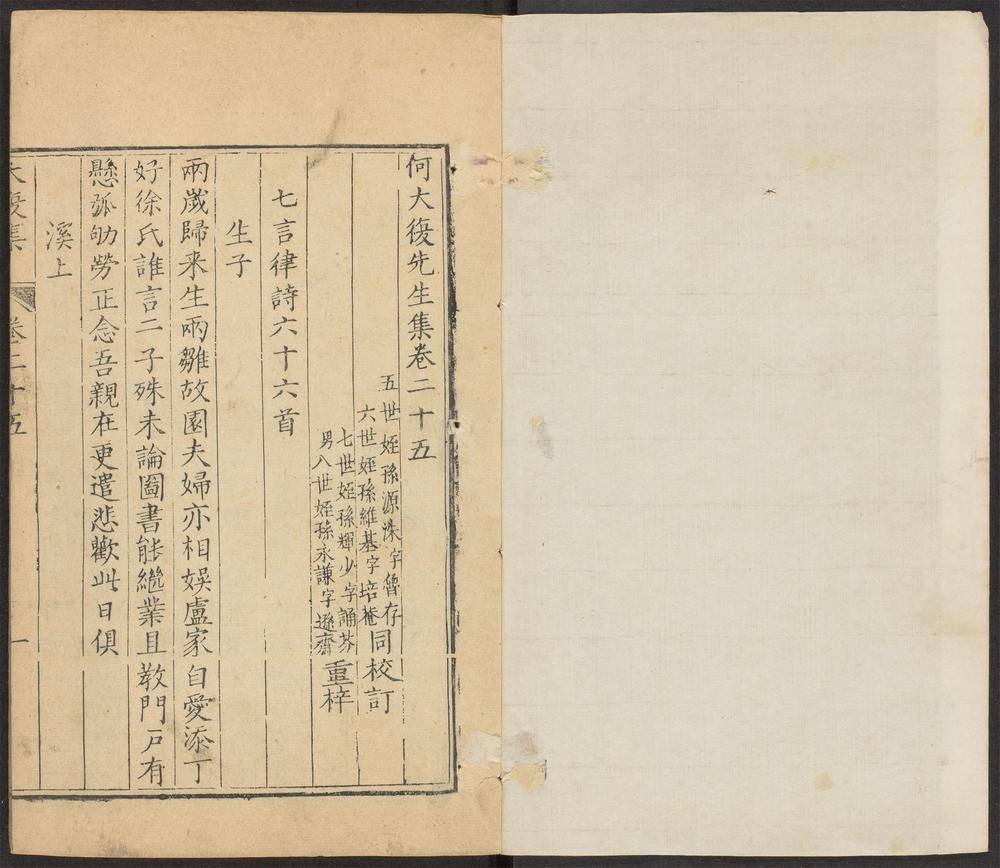 何大復先生集卷二十五
五世姪孫源洙字魯存
六世姪孫維基字培菴同校訂
七世姪孫輝少字誦芬
男八世姪孫永謙字遜齋重梓
七言律詩六十六首
生子
兩歲歸来生兩雛故園夫婦亦相娛盧家自愛添丁
好徐氏誰言二子殊未論圖書能繼業且教門戸有
懸弧劬勞正念吾親在更遣悲歡此日俱
溪上
大復集
卷二十五
一